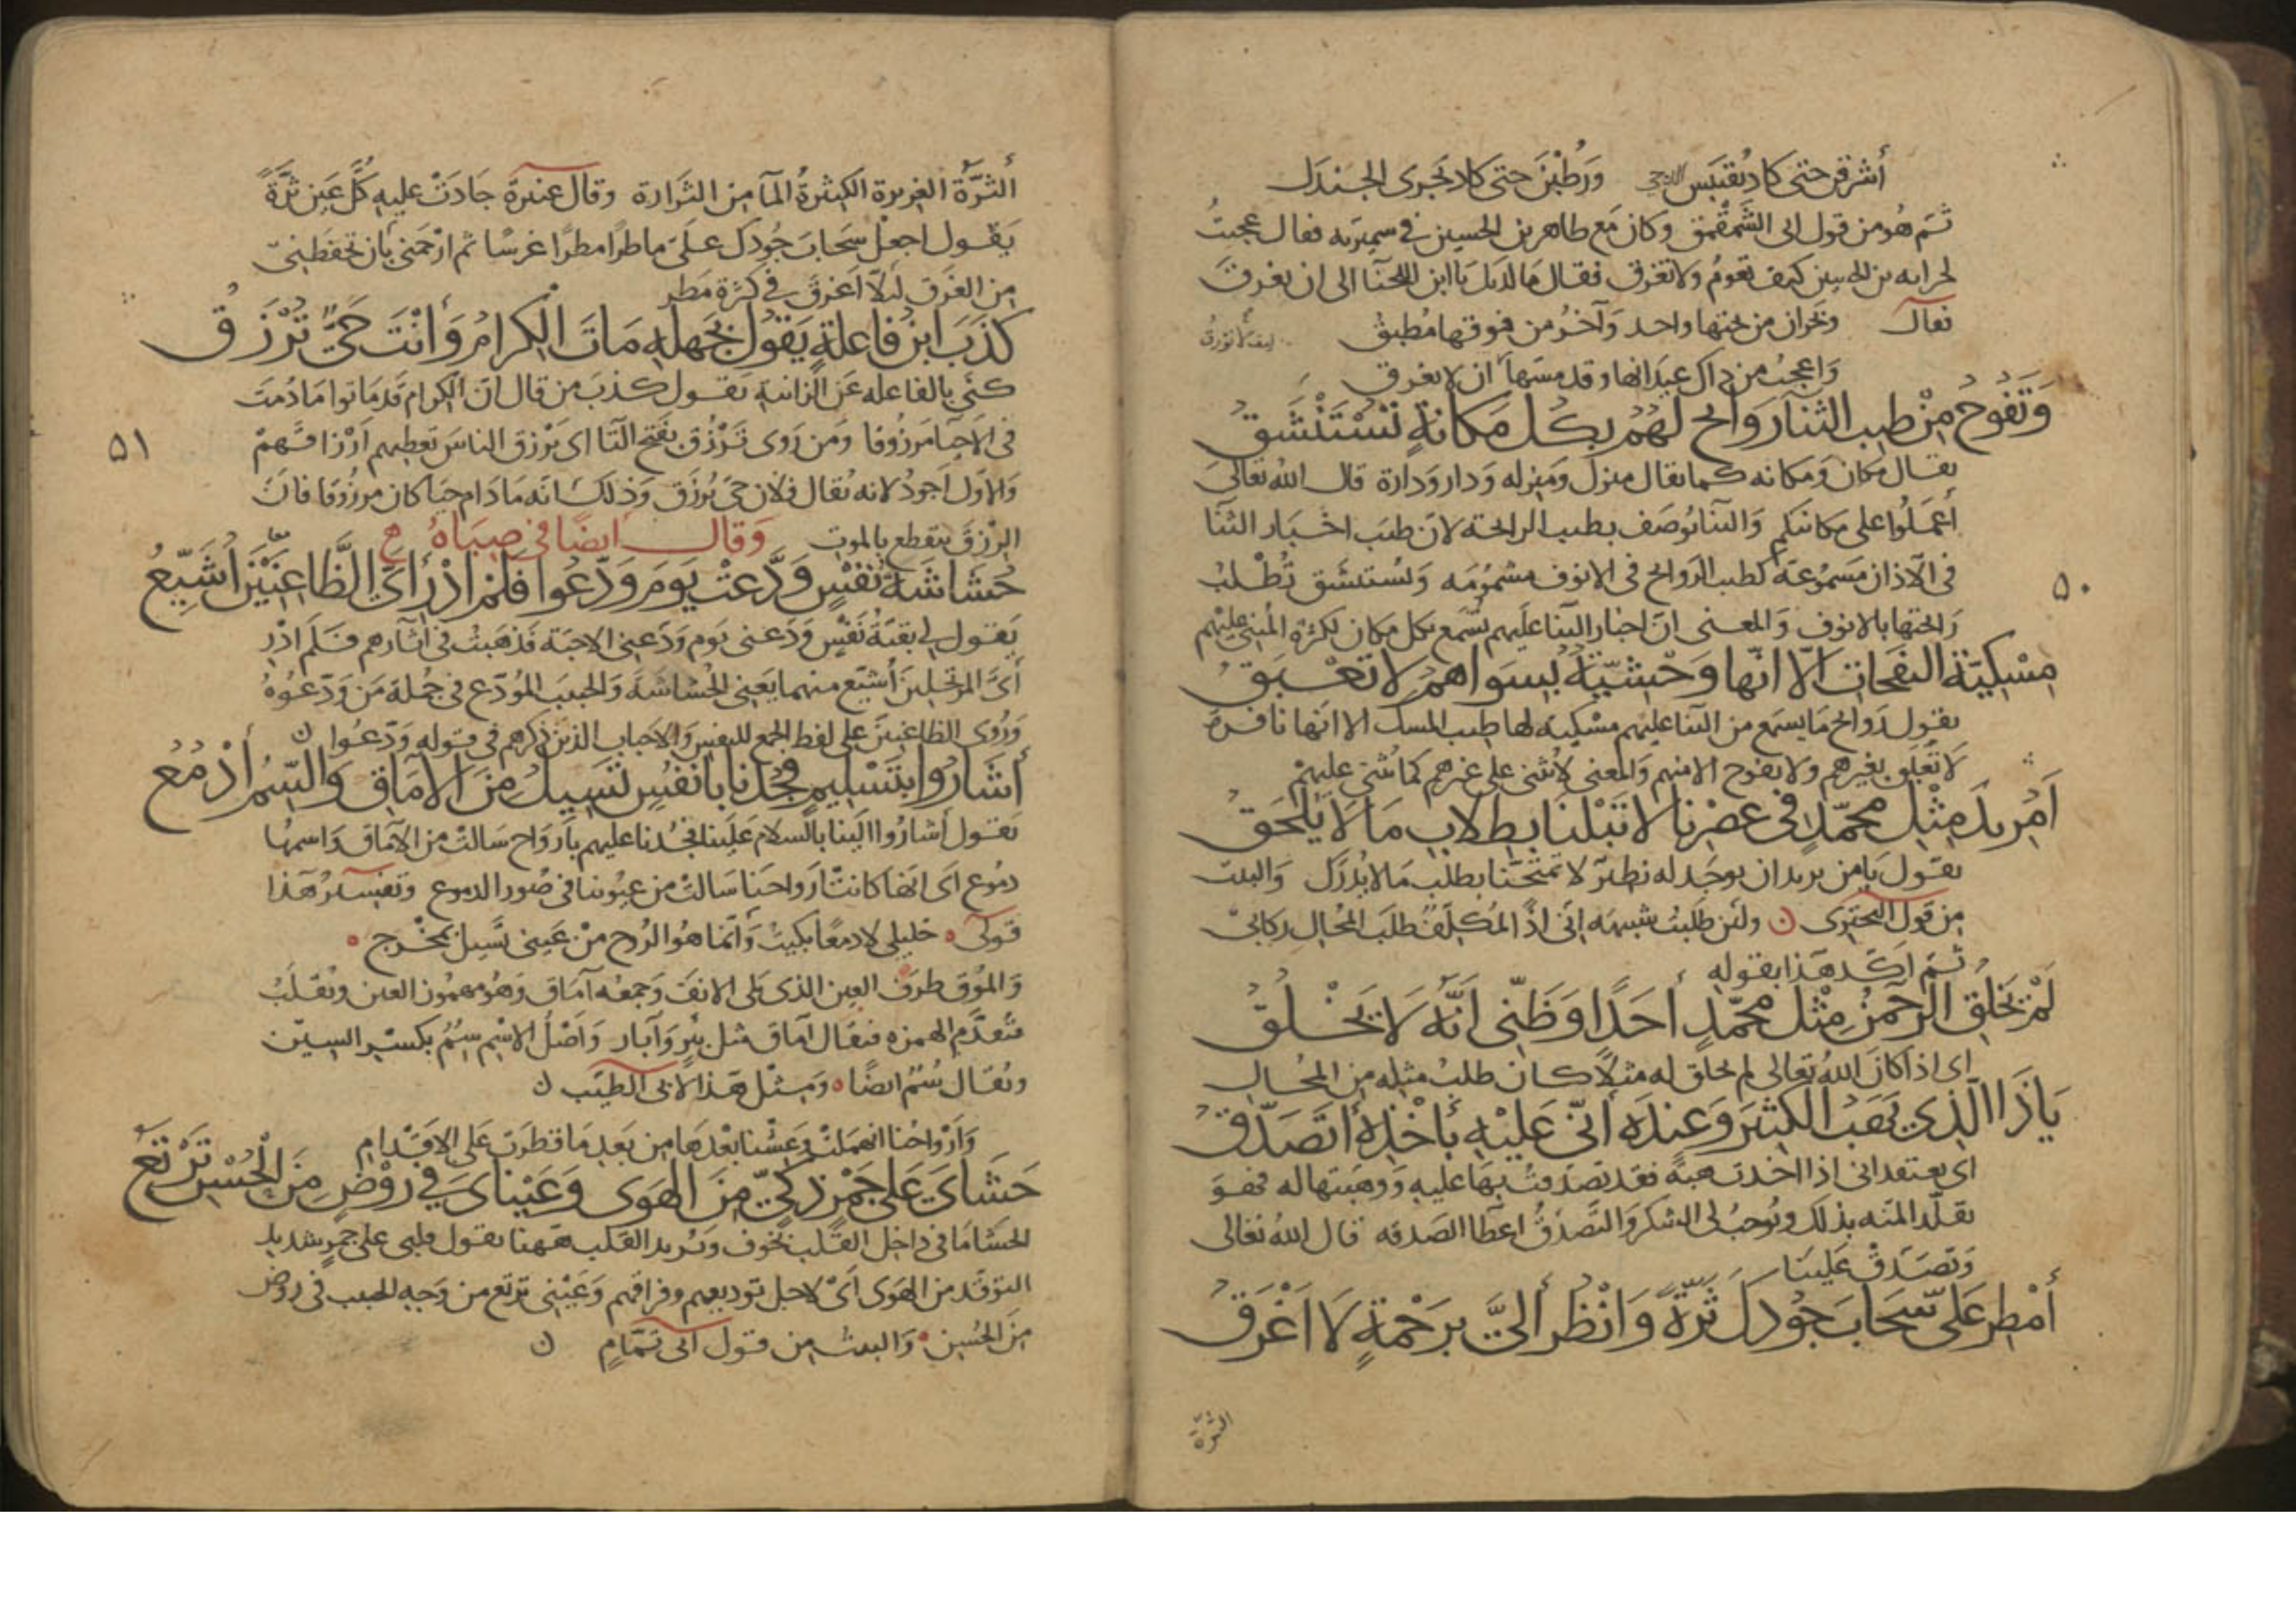 أشرقن حتى كاد يقتبس الدجى ورطبن حتى كاد يجرى الجندل
ثم هو من قول ابى الشمقمق وكان مع طاهر بن الحسين في سميريه فقال عجبت
لحراقه بن الحسين كيف تعوم ولا تغرق فقال ما لديك يا ابن اللخنا الى ان تغرق
فقال وبحران من تحتها واحد وآخر من فوقها مطبق
وأعجب من ذاك عيدانها وقد مسها أن لا يغرق
وَتَفُوحُ مِنْ طِيبِ الثناء رَوَائحٌ لَهُمُ بِكُلِّ مَكانَةٍ تُسْتَنْشَقُ
يقال مكان ومكانه كما يقال منزل ومنزله ودار ودارة قال الله تعالى
اعملوا على مكانتكم والثنا يوصف بطيب الرائحة لان طيب اخبار الثنا
فى الآذان مسموعة كطيب الروائح فى الانوف مشمومه وتستنشق تطلب
رائحتها بالانوف والمعنى ان اخبار الثنا عليهم تسمع بكل مكان لكثرة المثنى عليهم
مِسْكِيّة النفحات الّا انّها وَحْشيّةٌ بِسِوَاهُمُ لا تَعْبَقُ
يقول روائح ما يسمع من الثنا عليهم مسكيه لها طيب المسك الا انها نافرة
لا تعلق بغيرهم ولا تفوح الا منهم والمعنى لا يثنى على غيرهم كما يثنى عليهم
أَمُرِيدَ مِثْلِ محمّدٍ فى عصْرِنا لا تَبْلُنَا بِطِلابِ مَا لَا يُلْحَقُ
يقول يا من يريد ان يوجد له نظير لا تمتحنا بطلب ما لا يدرك والبيت
من قول البحترى ولئن طلبت شبيهه انى اذًا لمكلف طلب المحال ركابى
ثم اكد هذا بقوله
لَمْ يَخْلُقِ الرحمنُ مِثْلَ محمّدٍ أحَدًا وَظَنّى أنّهُ لَا يَخْلُقُ
اى اذا كان الله تعالى لم يخلق له مثلا كان طلب مثله من المحال
يَا ذَا الّذِى يَهَبُ الكثيرَ وَعِنْدَهُ أنّى عَلَيْهِ بأَخْذِهِ أتَصَدَّقُ
اى يعتقد انى اذا اخذت هبة فقد تصدقت بها عليه ووهبتها له فهو
يقلد المنه بذلك ويوجب لى الشكر والتصدق اعطا الصدقه قال الله تعالى
وتصدق علينا
أَمْطِرْ عَلىّ سَحَابَ جُودِكَ ثَرّةً وَانْظُرْ اليَّ بِرَحْمَةٍ لَا أَغْرَقُ
الثرة
٥٠
الثرّة الغزيرة الكثيرة المآ من الثرارة وقال عنترة جادت عليه كل عين ثرة
يقول اجعل سحاب جودك علىّ ماطرا مطرا غرسا ثم ارحمنى بان تحفظنى
من الغرق لئلا اغرق في كثرة مطر
كَذَبَ ابنُ فاعلةٍ يَقُولُ بِجَهلِهِ مَاتَ الكِرَامُ وَأَنْتَ حَىٌّ تُرْزَقُ
كنى بالفاعله عن الزانية يقول كذب من قال ان الكرام قد ماتوا ما دمت
فى الاحيا مرزوقا ومن روى تَرزُق بفتح التا اى يرزق الناس تعطيهم ارزاقهم
والاول اجود لانه يقال فلان حى يرزق وذلك انه ما دام حيا كان مرزوقا فان
الرزق ينقطع بالموت وقال ايضًا فى صباه
حُشَاشَةُ نَفْسٍ وَدَّعتْ يَومَ وَدَّعُوا فلم أَدْرِ أىَّ الظَّاعِنَيْنِ أُشَيِّعُ
يقول لى بقية نفس ودعتنى يوم ودعنى الاحبة فذهبت فى آثارهم فلم ادر
أىّ المرتحلين أشيع منهما يعنى الحشاشة والحبيب المودع فى جملة من ودعوه
وروى الظاعنين على لفظ الجمع للنفس والاحباب الذين ذكرهم فى قوله ودعوا ن
أشَارُوا بِتَسْليمٍ فَجُدْنا بأنفُسٍ تَسِيلُ مِنَ الآمَاقِ وَالسِّمُ أَدْمُعُ
يقول أشاروا الينا بالسلام علينا فجدنا عليهم بارواح سالت من الآماق واسمها
دموع اى انها كانت ارواحنا سالت من عيوننا فى صور الدموع وتفسير هذا
قولى خليلى لا دمعا بكيت وانما هو الروح من عينى تسيل بمخرج
والمؤق طرف العين الذى يلى الانف وجمعه آماق وهو مهموز العين ويقلب
فتقدم الهمزه فيقال آماق مثل بئر وآبار واصل الاسم سم بكسر السين
ويقال سُم ايضًا ومثل هذا لابى الطيب ن
وارواحنا انهملت وعشنا بعدها من بعد ما قطرت على الاقدام
حَشَاىَ عَلى جَمْرٍ ذَكِىٍّ مِنَ الهَوَى وَعَيْنَاىَ فى رَوْضٍ مِنَ الْحُسْنِ تَرْتَعُ
الحشا ما فى داخل القلب نحوف ويريد القلب ههنا يقول قلبى على جمر شديد
التوقد من الهوى اى لاجل توديعهم وفراقهم وعينى ترتع من وجه الحبيب فى روض
من الحسن والبيت من قول ابى تمام ن
٥١